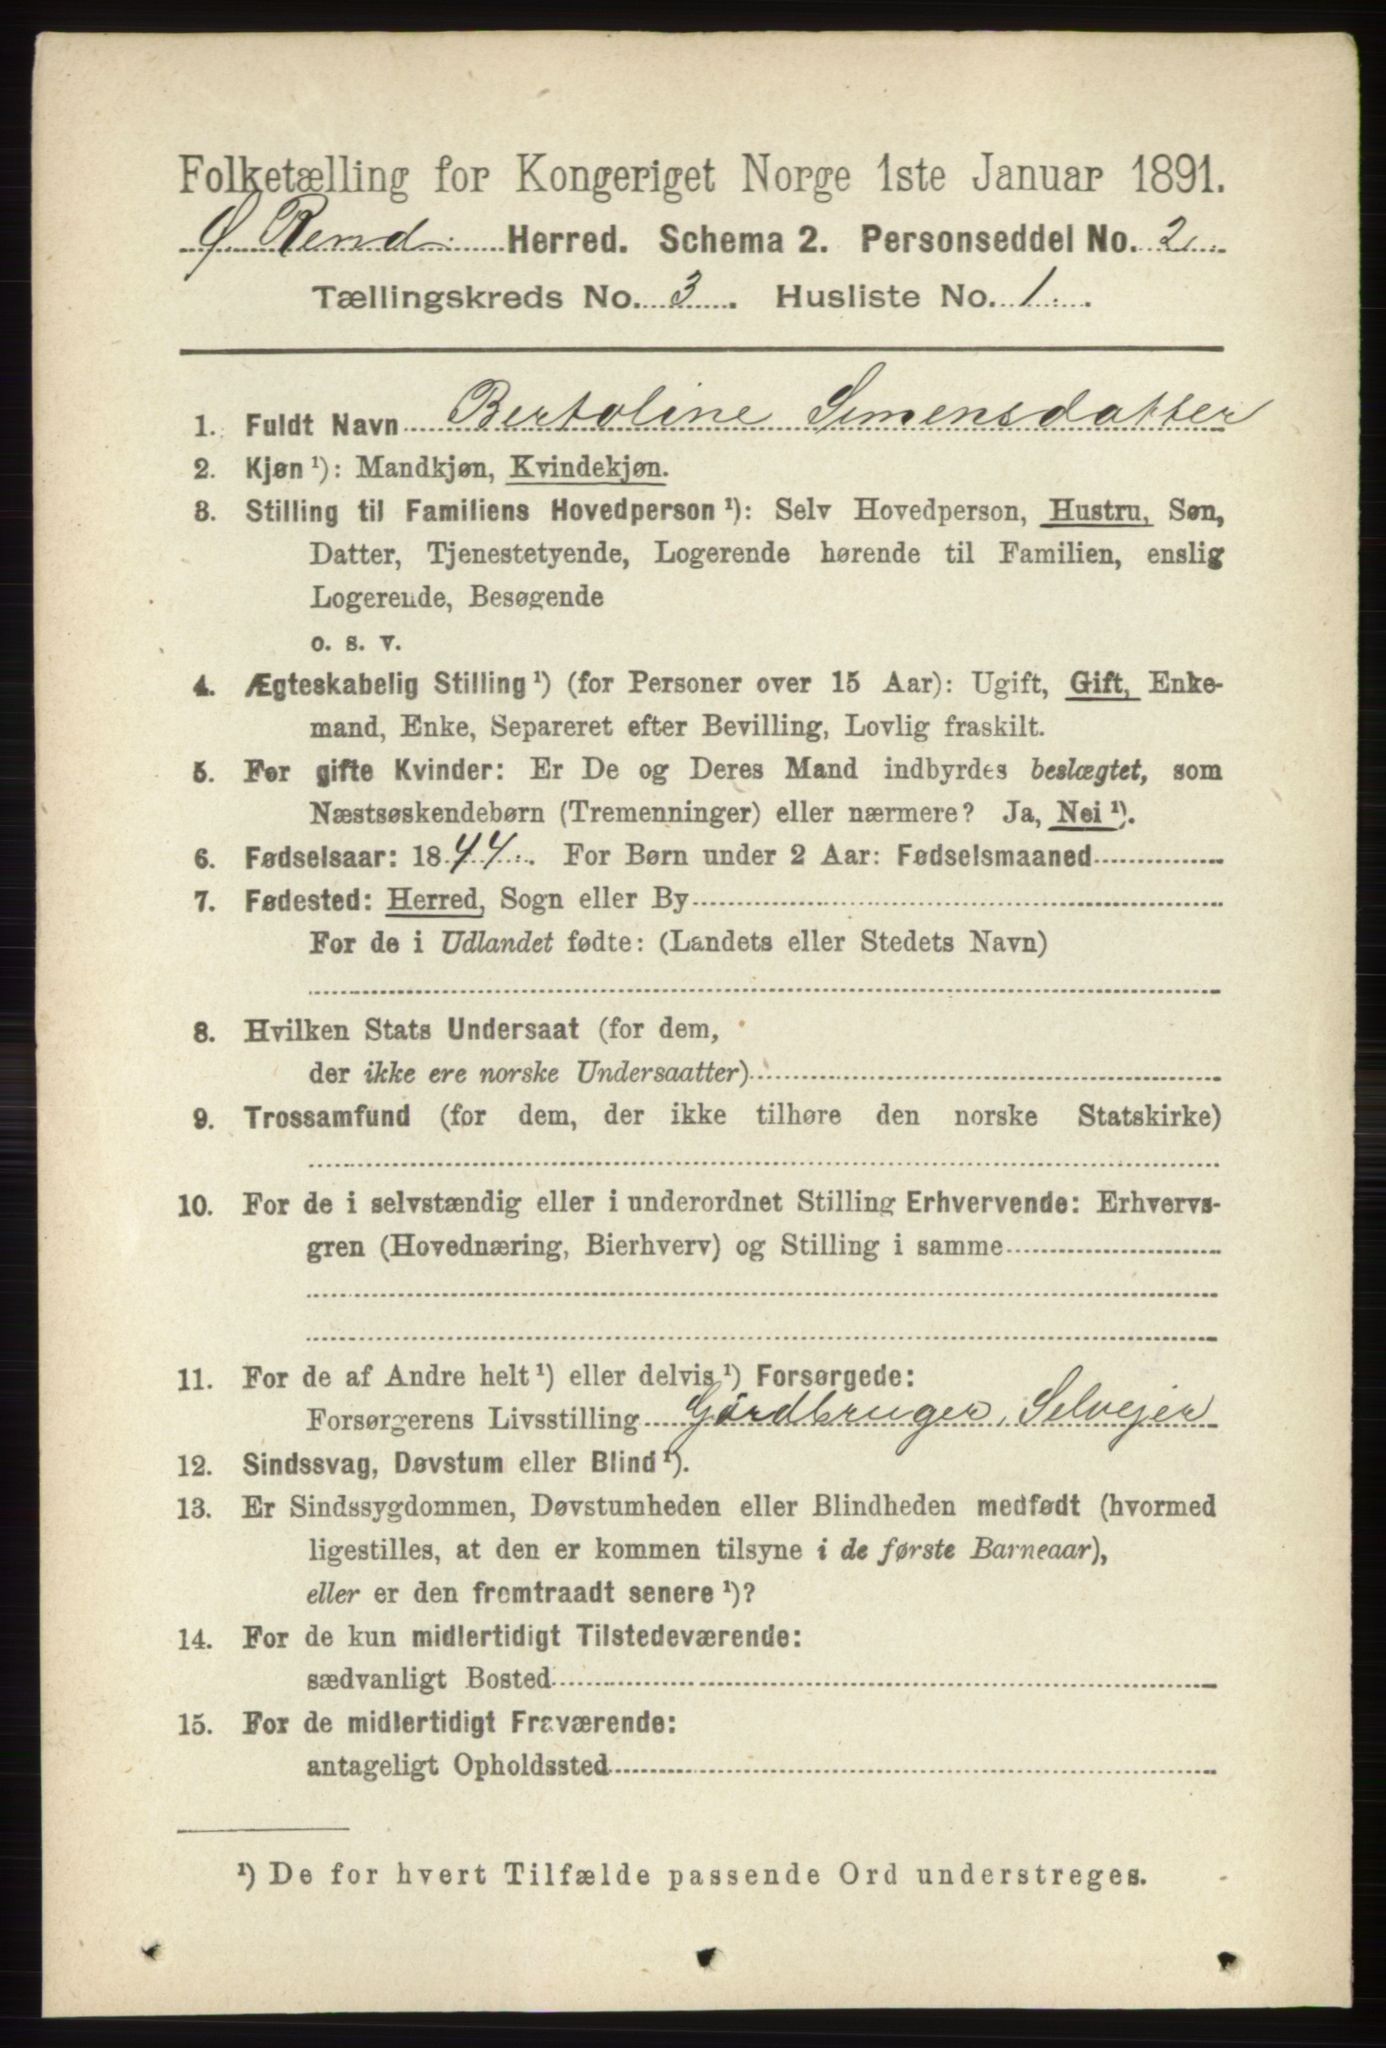 Folketælling for Kongeriget Norge 1ste Januar 1891.
Ø Rend. Herred. Schema 2. Personseddel No. 2
Tællingskreds No. 3. Husliste No. 1
1. Fuldt Navn Bertoline Simensdatter
2. Kjøn ¹): Mandkjøn, Kvindekjøn.
3. Stilling til Familiens Hovedperson ¹): Selv Hovedperson, Hustru, Søn,
Datter, Tjenestetyende, Logerende hørende til Familien, enslig
Logerende, Besøgende
o. s. v.
4. Ægteskabelig Stilling ¹) (for Personer over 15 Aar): Ugift, Gift, Enke-
mand, Enke, Separeret efter Bevilling, Lovlig fraskilt.
5. For gifte Kvinder: Er De og Deres Mand indbyrdes beslægtet, som
Næstsøskendebørn (Tremenninger) eller nærmere? Ja, Nei ¹).
6. Fødselsaar: 1844. For Børn under 2 Aar: Fødselsmaaned
7. Fødested: Herred, Sogn eller By
For de i Udlandet fødte: (Landets eller Stedets Navn)
8. Hvilken Stats Undersaat (for dem,
der ikke ere norske Undersaatter)
9. Trossamfund (for dem, der ikke tilhøre den norske Statskirke)
10. For de i selvstændig eller i underordnet Stilling Erhvervende: Erhvervs-
gren (Hovednæring, Bierhverv) og Stilling i samme
11. For de af Andre helt ¹) eller delvis ¹) Forsørgede:
Forsørgerens Livsstilling Gårdbruger, Selvejer
12. Sindssvag, Døvstum eller Blind ¹).
13. Er Sindssygdommen, Døvstumheden eller Blindheden medfødt (hvormed
ligestilles, at den er kommen tilsyne i de første Barneaar),
eller er den fremtraadt senere ¹)?
14. For de kun midlertidigt Tilstedeværende:
sædvanligt Bosted
15. For de midlertidigt Fraværende:
antageligt Opholdssted
¹) De for hvert Tilfælde passende Ord understreges.